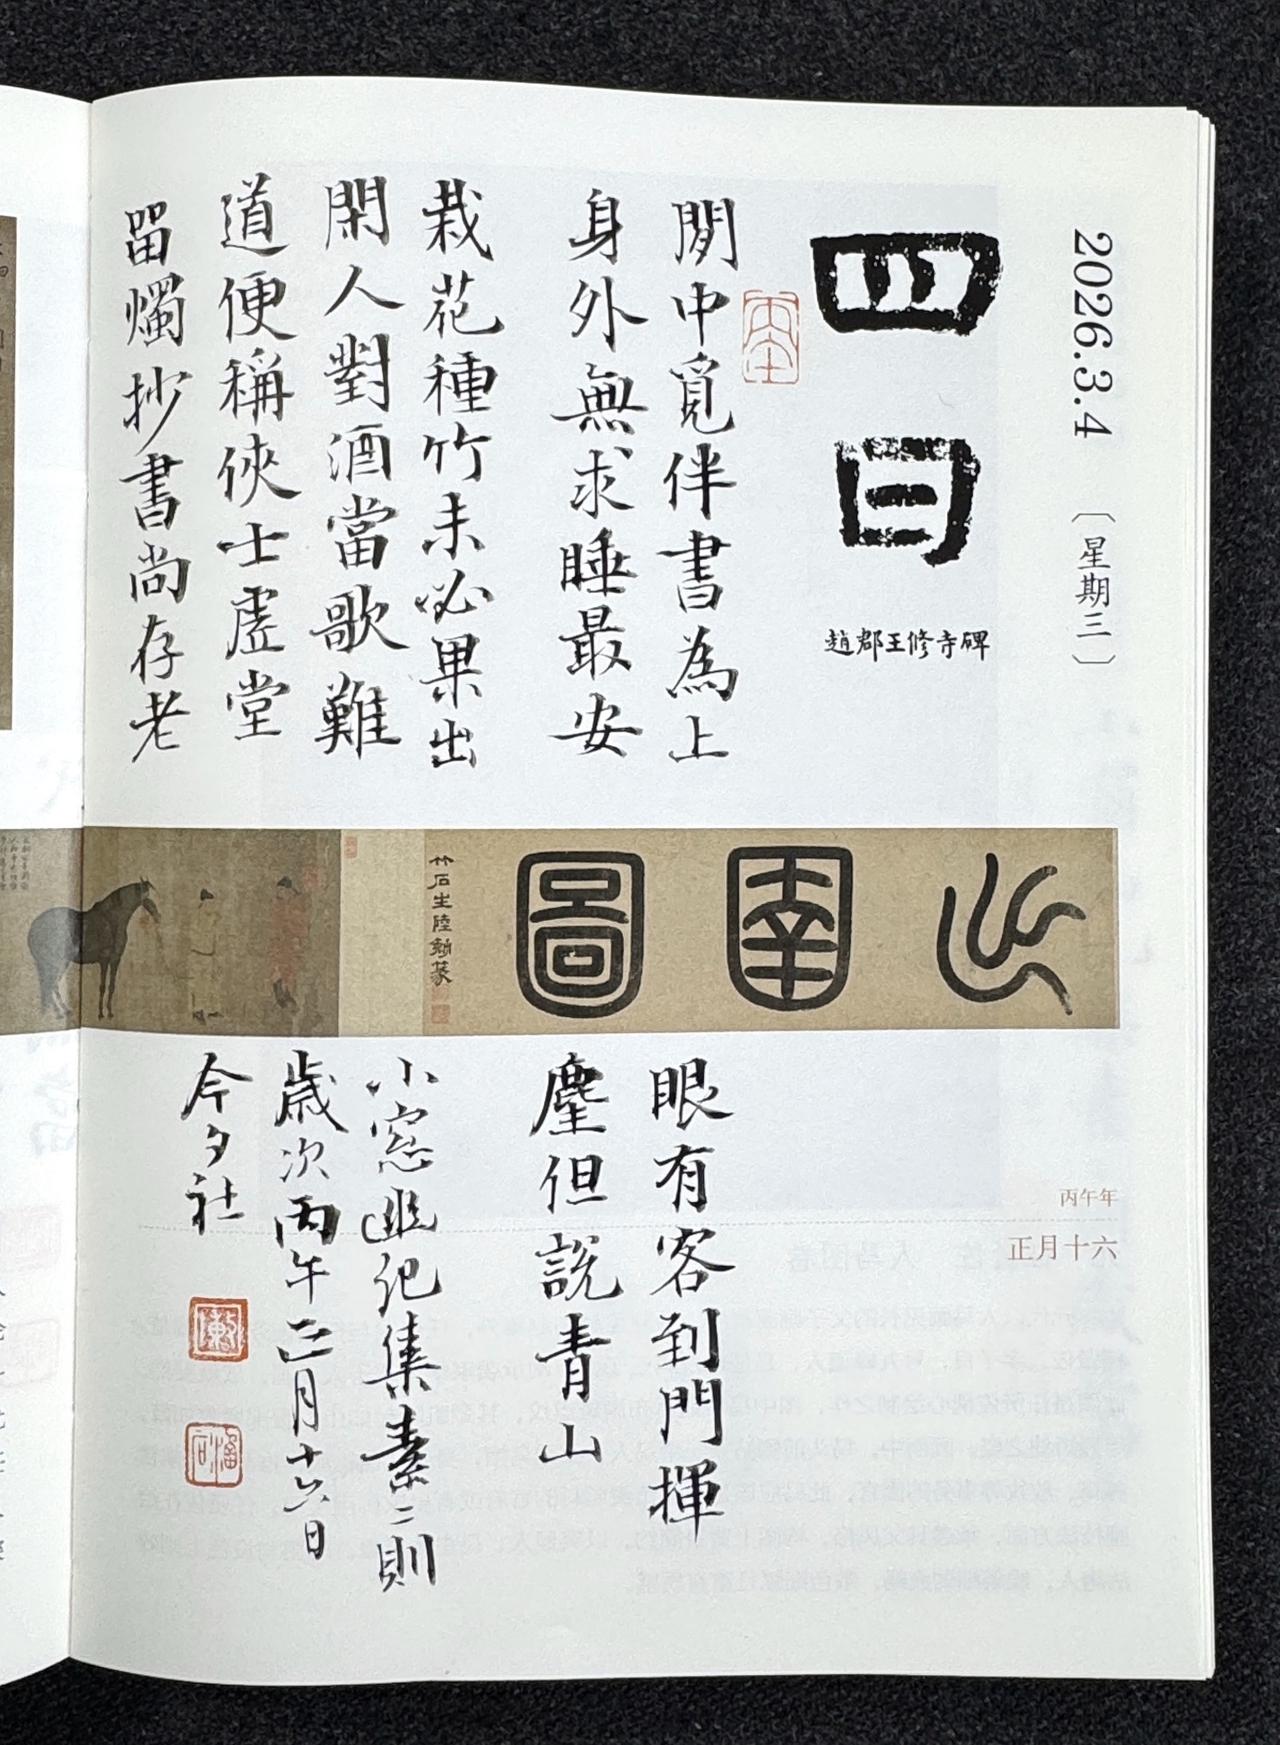 2026.3.4 〔星期三〕
四日
趙郡王修寺碑
閒中覓伴書為上
身外無求睡最安
栽花種竹未必果出
閑人對酒當歌難
道便稱俠士虛堂
留燭抄書尚存老
眼有客到門揮
麈但說青山
小窗幽紀集素二則
歲次丙午正月十六日
今夕社
圖
竹石生陸勉篆
丙午年
正月十六